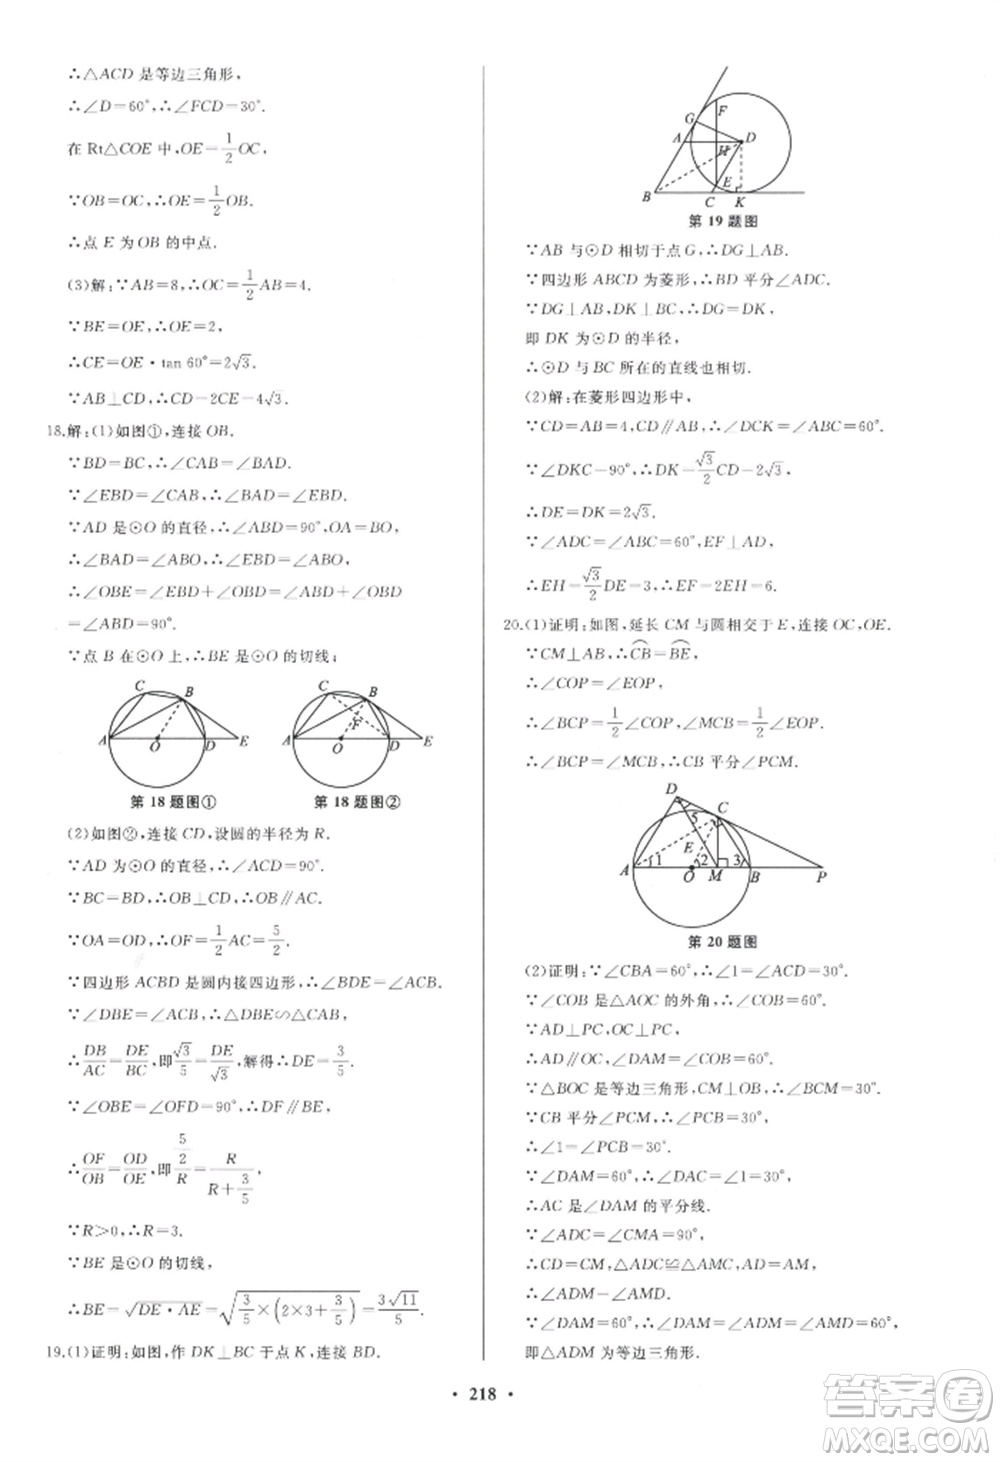 ∴△ACD 是等边三角形,
∴∠D=60°,∴∠FCD=30°.
在 Rt△COE 中,OE=1/2OC,
∵OB=OC,∴OE=1/2OB.
∴点 E 为 OB 的中点.
(3)解:∵AB=8,∴OC=1/2AB=4.
∵BE=OE,∴OE=2,
∴CE=OE·tan 60°=2√3.
∵AB⊥CD,∴CD=2CE=4√3.
18.解:(1)如图①,连接 OB.
∵BD=BC,∴∠CAB=∠BAD.
∵∠EBD=∠CAB,∴∠BAD=∠EBD.
∵AD 是⊙O 的直径,∴∠ABD=90°,OA=BO,
∴∠BAD=∠ABO,∴∠EBD=∠ABO.
∴∠OBE=∠EBD+∠OBD=∠ABO+∠OBD
=∠ABD=90°.
∵点 B 在⊙O 上,∴BE 是⊙O 的切线;
C B A O D E
C B F A O D E
第 18 题图① 第 18 题图②
(2)如图②,连接 CD,设圆的半径为 R.
∵AD 为⊙O 的直径,∴∠ACD=90°.
∵BC=BD,∴OB⊥CD,∴OB∥AC.
∵OA=OD,∴OF=1/2AC=5/2.
∵四边形 ACBD 是圆内接四边形,∴∠BDE=∠ACB.
∵∠DBE=∠ACB,∴△DBE∽△CAB,
∴DB/AC=DE/BC,即√3/5=DE/√3,解得∴DE=3/5.
∵∠OBE=∠OFD=90°,∴DF∥BE,
∴OF/OB=OD/OE,即(5/2)/R=R/(R+3/5),
∵R>0,∴R=3.
∵BE 是⊙O 的切线,
∴BE=√(DE·AE)=√(3/5×(2×3+3/5))=3√11/5.
19.(1)证明:如图,作 DK⊥BC 于点 K,连接 BD.
F G A H D E B C K
第 19 题图
∵AB 与⊙D 相切于点 G,∴DG⊥AB.
∵四边形 ABCD 为菱形,∴BD 平分∠ADC.
∵DG⊥AB,DK⊥BC,∴DG=DK,
即 DK 为⊙D 的半径,
∴⊙D 与 BC 所在的直线也相切.
(2)解:在菱形四边形中,
∵CD=AB=4,CD∥AB,∴∠DCK=∠ABC=60°.
∵∠DKC=90°,∴DK=√3/2CD=2√3.
∴DE=DK=2√3.
∵∠ADC=∠ABC=60°,EF⊥AD,
∴EH=√3/2DE=3,∴EF=2EH=6.
20.(1)证明:如图,延长 CM 与圆相交于 E,连接 OC,OE.
∵CM⊥AB,∴⌒CB=⌒BE,
∴∠COP=∠EOP,
∴∠BCP=1/2∠COP,∠MCB=1/2∠EOP.
∴∠BCP=∠MCB,∴CB 平分∠PCM.
D C 5 E A 1 O 2 M 3 B P
第 20 题图
(2)证明:∵∠CBA=60°,∴∠1=∠ACO=30°.
∵∠COB 是△AOC 的外角,∴∠2=60°.
∵AD⊥PC,OC⊥PC,
∴AD∥OC,∴∠DAM=∠COB=60°.
∵△BOC 是等边三角形,CM⊥OB,∴∠BCM=30°.
∵CB 平分∠PCM,∴∠PCB=30°,
∴∠1=∠PCB=30°.
∵∠DAM=60°,∴∠DAC=∠1=30°,
∴AC 是∠DAM 的平分线.
∵∠ADC=∠CMA=90°,
∴CD=CM,∴△ADC≌△AMC,AD=AM.
∴∠ADM=∠AMD.
∵∠DAM=60°,∴∠ADM=∠AMD=60°,
即△ADM 为等边三角形.
· 218 ·
答案圈
MXQE.COM